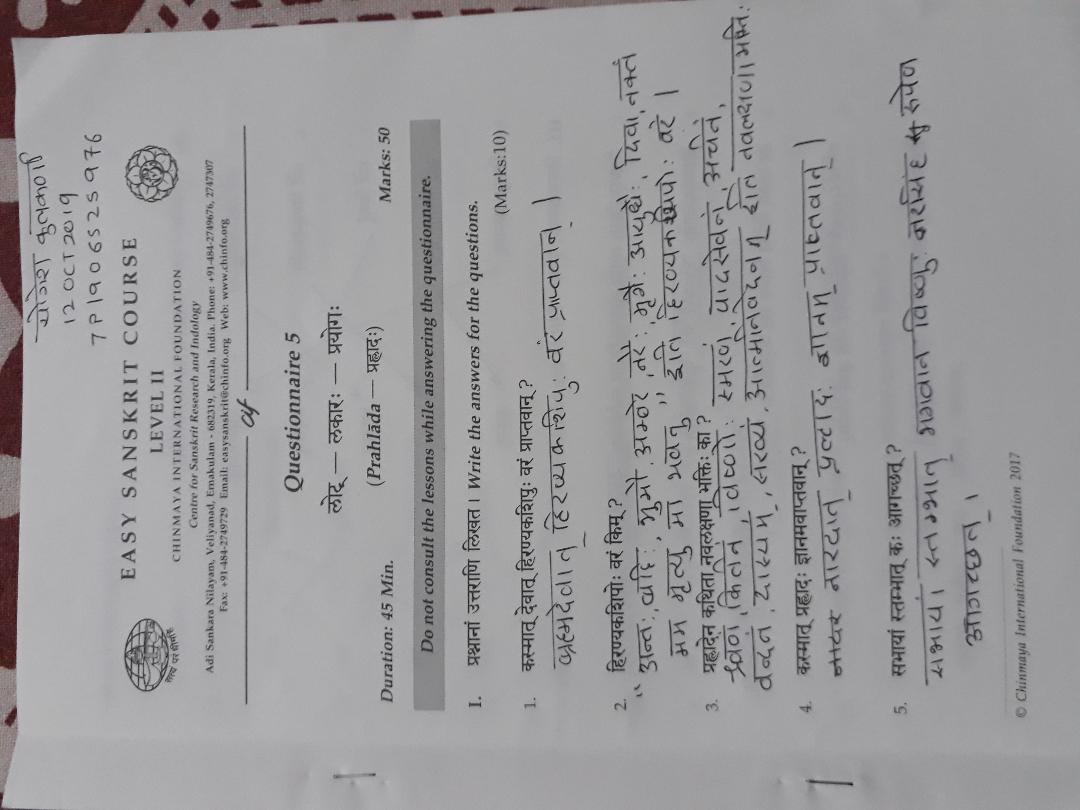 योगेश कुलकर्णी
12 OCT 2019
7P1906525976
EASY SANSKRIT COURSE
LEVEL II
CHINMAYA INTERNATIONAL FOUNDATION
Centre for Sanskrit Research and Indology
Adi Sankara Nilayam, Veliyanad, Ernakulam - 682319, Kerala, India. Phone: +91-484-2749676, 2747307
Fax: +91-484-2749729 Email: easysanskrit@chinfo.org Web: www.chinfo.org
सत्यं परं धीमहि
cif
Questionnaire 5
लोट् — लकारः — प्रयोगः
(Prahlāda — प्रह्लादः)
Duration: 45 Min. Marks: 50
Do not consult the lessons while answering the questionnaire.
I. प्रश्नानां उत्तराणि लिखत । Write the answers for the questions.
(Marks:10)
1. कस्मात् देवात् हिरण्यकशिपुः वरं प्राप्तवान् ?
ब्रह्मदेवात् हिरण्यकशिपुः वरं प्राप्तवान् ।
2. हिरण्यकशिपोः वरं किम् ?
"अन्तः, बहिः, भुमौ, अम्बरे, नरैः, मृगैः आयुधैः, दिवा, नक्तं
मम मृत्यु मा भवतु" इति हिरण्यकशिपोः वरं ।
3. प्रह्लादेन कथिता नवलक्षणा भक्तिः का ?
श्रवणं, किर्तनं, विष्णोः स्मरणं, पादसेवनं, अर्चनं,
वन्दनं, दास्यम्, सख्यं, आत्मनिवेदनम् इति नवलक्षणा भक्तिः
4. कस्मात् प्रह्लादः ज्ञानमवाप्तवान् ?
नारदात् प्रल्हादः ज्ञानम् प्राप्तवान् ।
5. सभायां स्तम्भात् कः आगच्छत् ?
सभायां स्तम्भात् भगवान विष्णुः नरसिंह रुपेण
आगच्छत् ।
© Chinmaya International Foundation 2017